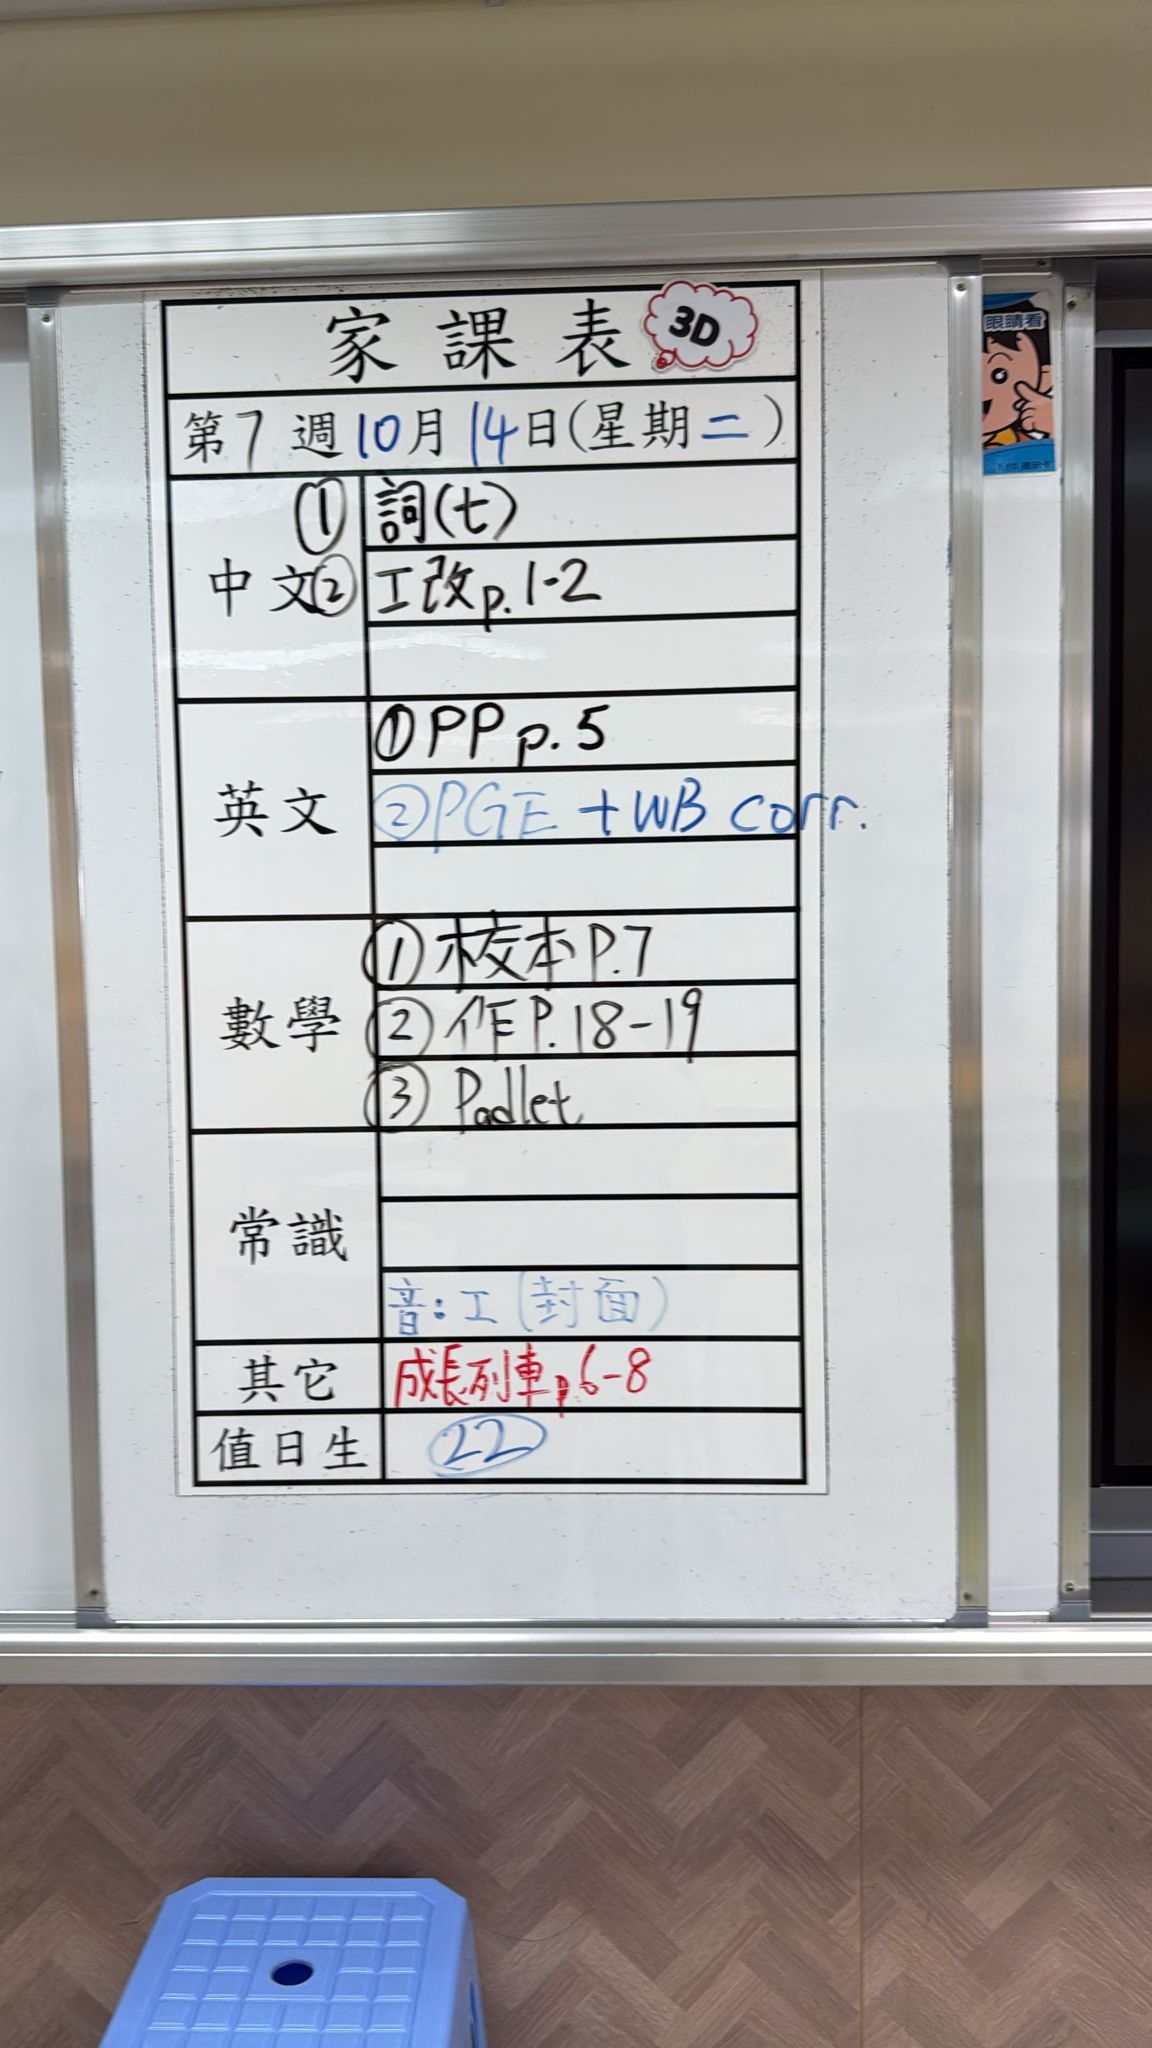 家課表 3D
第7週10月14日(星期二)
中文
① 詞(七)
② 工改p.1-2
英文
① PP p.5
② PGE + WB corr.
數學
① 校本P.7
② 作P.18-19
③ Padlet
常識
音:工(封面)
其它 成長列車p.6-8
值日生 22
眼睛看